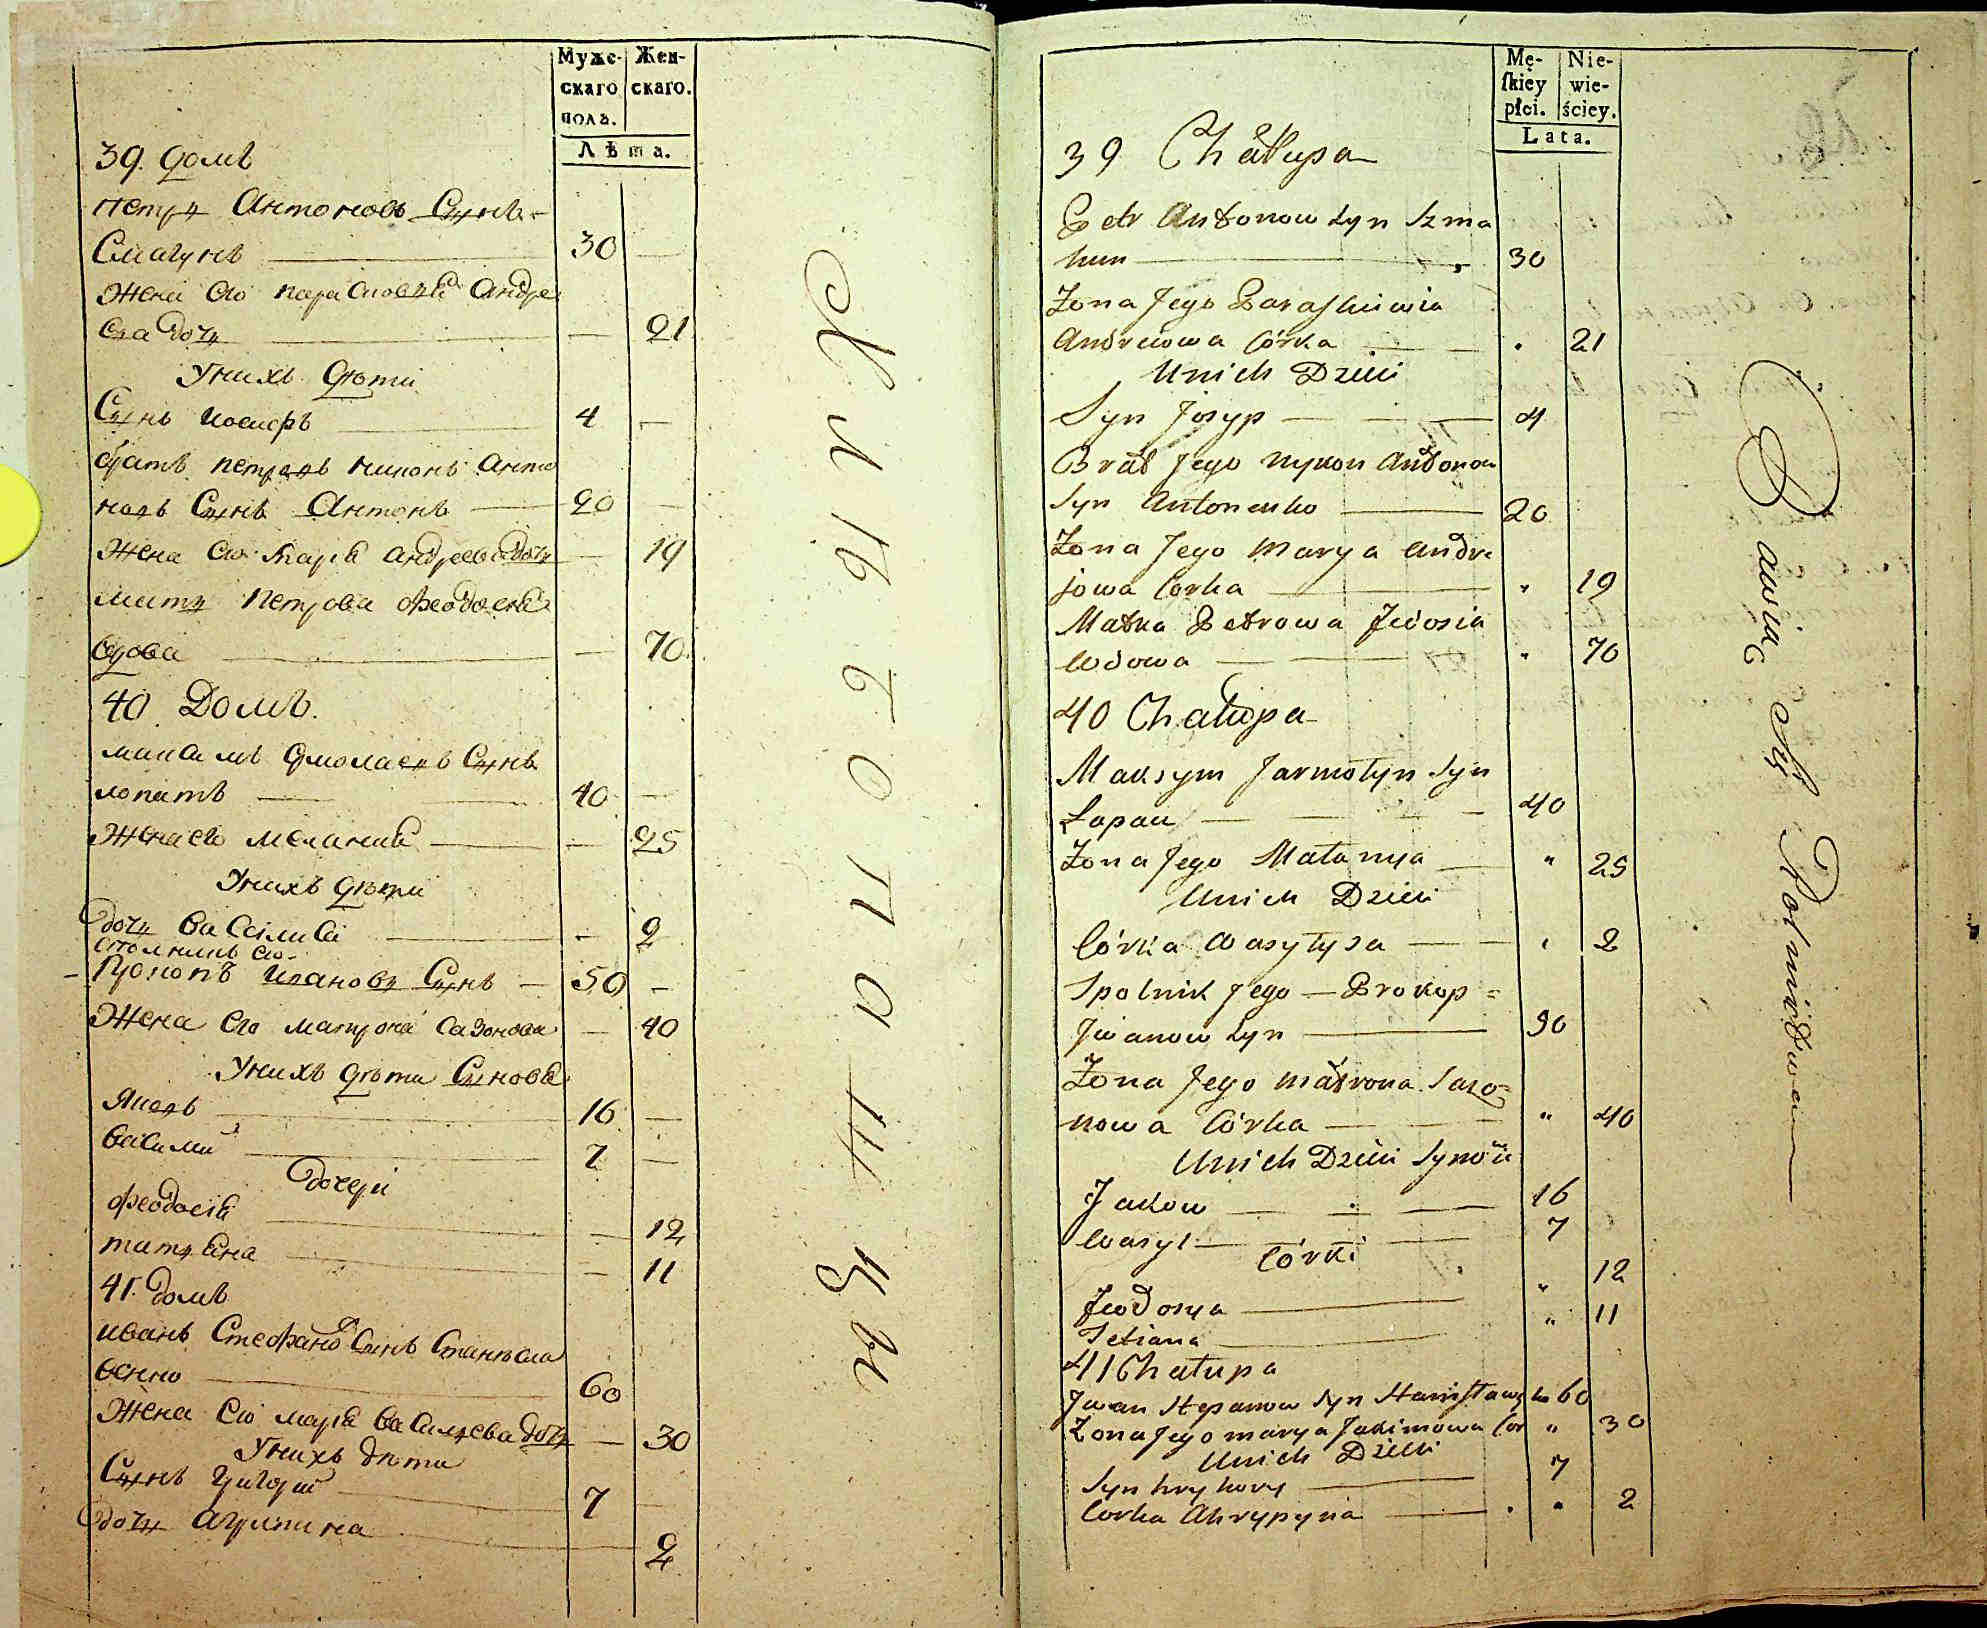 Муже- Жен-
скаго скаго.
пола.
Лѣта.
39. домъ
петръ Антоновъ Сынъ
Смагунъ 30 —
Жена его парасковия Андре
ева дочь — 21
У нихъ дѣти
Сынъ иосифъ 4 —
братъ петровъ никонъ Анто
новъ Сынъ Антонъ 20 —
Жена его марія андреева дочь — 19
мать Петрова феодосия
вдова — 70
40 Домъ.
Сынъ
лопатъ 40 —
Жена его мелания — 25
У нихъ дѣти
дочь василиса — 2
его
Прокопъ Ивановъ Сынъ — 50 —
Жена его матрона сазонова — 40
У нихъ дѣти Сыновя
Яковъ 16 —
василий 7 —
дочери
феодосія — 12
татьяна — 11
41. домъ
иванъ Стефановъ Сынъ Станисла
венко 60
Жена его марія васильева дочь — 30
У нихъ дѣти
Сынъ григорій 7 —
дочь агрипина 2
Mę- Nie-
skiey wie-
płci. ściey.
Lata.
39 Chałupa
Petr Antonow Syn Szma
hun 30
Żona Jego Paraskiewia
Andreiowa Córka 21
U nich Dzieci
Syn Josyp 4
Brat Jego Nykon Antonow
Syn Antonenko 20
Żona Jego Marya Andre
jowa Corka " 19
Matka Petrowa Fedosia
Wdowa " 70
40 Chałupa
Maksym Jarmołyn Syn
Łapan 40
Żona Jego Małanya " 25
U nich Dzieci
Córka Wasyłysa 2
Spolnik Jego — Prokop =
Jwanow Syn 50
Żona Jego Matrona Sazo=
nowa Córka " 40
U nich Dzieci Synów
Jakow 16
Wasyl 7
Córki
Fedosya " 12
Tetiana " 11
41 Chałupa
Jwan Stepanow Syn Stanisławenko 60
Żona Jego Marya Jakimowa Cor " 30
U nich Dzieci
Syn Hryhory 7
Corka Ahrypyna " 2